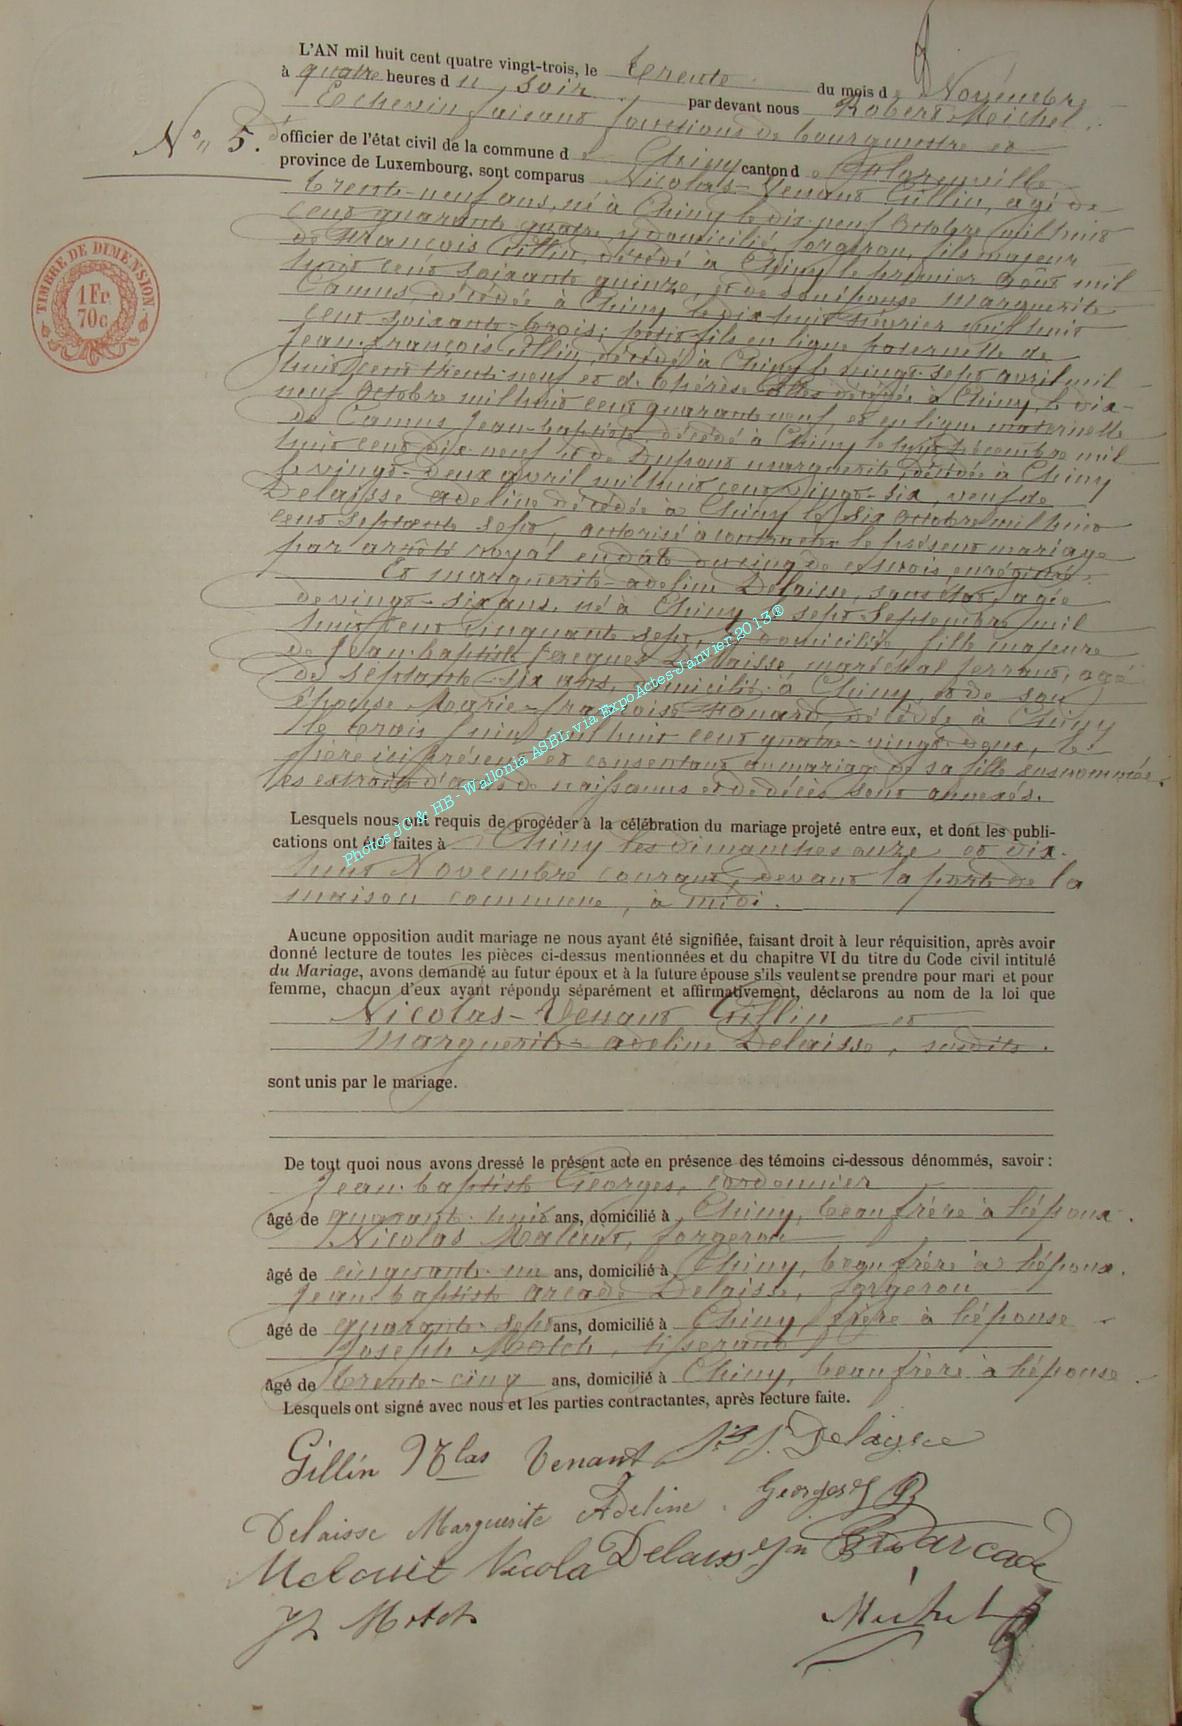 L'AN mil huit cent quatre vingt-trois, le trente du mois de Novembre
à quatre heures du soir par devant nous Robert Michel
Echevin faisant fonctions de bourgmestre et
No 5.
officier de l'état civil de la commune de Chiny canton de Florenville
province de Luxembourg, sont comparus Nicolas-Venant Gillin, agé de
trente-neuf ans, né à Chiny le dix-neuf Octobre mil huit
cent quarante quatre y domicilié, forgeron, fils majeur
de François Gillin, décédé à Chiny le premier Août mil
huit cent soixante quinze, et de son épouse Marguerite
Camus, décédée à Chiny le dix huit Février mil huit
cent soixante-trois; petit fils en ligne paternelle de
Jean-François Gillin, décédé à Chiny le vingt-sept avril mil
huit cent trente-neuf et de Thérèse décédée à Chiny, le dix-
neuf Octobre mil huit cent quarante neuf, et en ligne maternelle
de Camus Jean-baptiste, décédé à Chiny le huit Décembre mil
huit cent dix-neuf et de Dupont Marguerite, décédée à Chiny
le vingt-deux avril mil huit cent vingt-six, veuf de
Delaisse Adeline décédée à Chiny le six Octobre mil huit
cent septante sept, autorisé à contracter le présent mariage
par arrêté royal en date du cinq de ce mois, enrégistré.
Et Marguerite-Adeline Delaisse, sans état, agée
de vingt-six ans, né à Chiny sept Septembre mil
huit cent cinquante sept, y domiciliée, fille majeure
de Jean-baptiste Jacques Delaisse, maréchal ferrant, agé
de septante-six ans, domicilié à Chiny et de son
épouse Marie-Françoise décédée à Chiny
le trois Juin mil huit cent quatre-vingt deux, le
père ici présent et consentant au mariage de sa fille susnommée.
les extraits d'actes de naissances et de décès sont annexés.
Lesquels nous ont requis de procéder à la célébration du mariage projeté entre eux, et dont les publi-
cations ont été faites à Chiny les dimanches onze et dix-
huit Novembre courant, devant la porte de la
maison commune, à midi.
Aucune opposition audit mariage ne nous ayant été signifiée, faisant droit à leur réquisition, après avoir
donné lecture de toutes les pièces ci-dessus mentionnées et du chapitre VI du titre du Code civil intitulé
du Mariage, avons demandé au futur époux et à la future épouse s'ils veulent se prendre pour mari et pour
femme, chacun d'eux ayant répondu séparément et affirmativement, déclarons au nom de la loi que
Nicolas-Venant Gillin et
Marguerite-Adeline Delaisse, susdits.
sont unis par le mariage.
De tout quoi nous avons dressé le présent acte en présence des témoins ci-dessous dénommés, savoir:
Jean-baptiste Georges, cordonnier
âgé de quarante-huit ans, domicilié à Chiny, beau frère à l'époux.
Nicolas forgeron
âgé de cinquante-un ans, domicilié à Chiny, beau frère à l'époux.
Jean-baptiste arcade Delaisse, forgeron
âgé de quarante-sept ans, domicilié à Chiny, frère à l'épouse
Joseph tisserand
âgé de trente-cinq ans, domicilié à Chiny, beau frère à l'épouse.
Lesquels ont signé avec nous et les parties contractantes, après lecture faite.
Gillin Nlas Venant J. B. J. Delaisse
Delaisse Marguerite Adeline. Georges J B
Nicola Delaisse Jn Bte arcade
Michel
TIMBRE DE DIMENSION
1 Fr.
70 c
Photos JC & HB - Wallonia ASBL via ExpoActes-Janvier 2013®